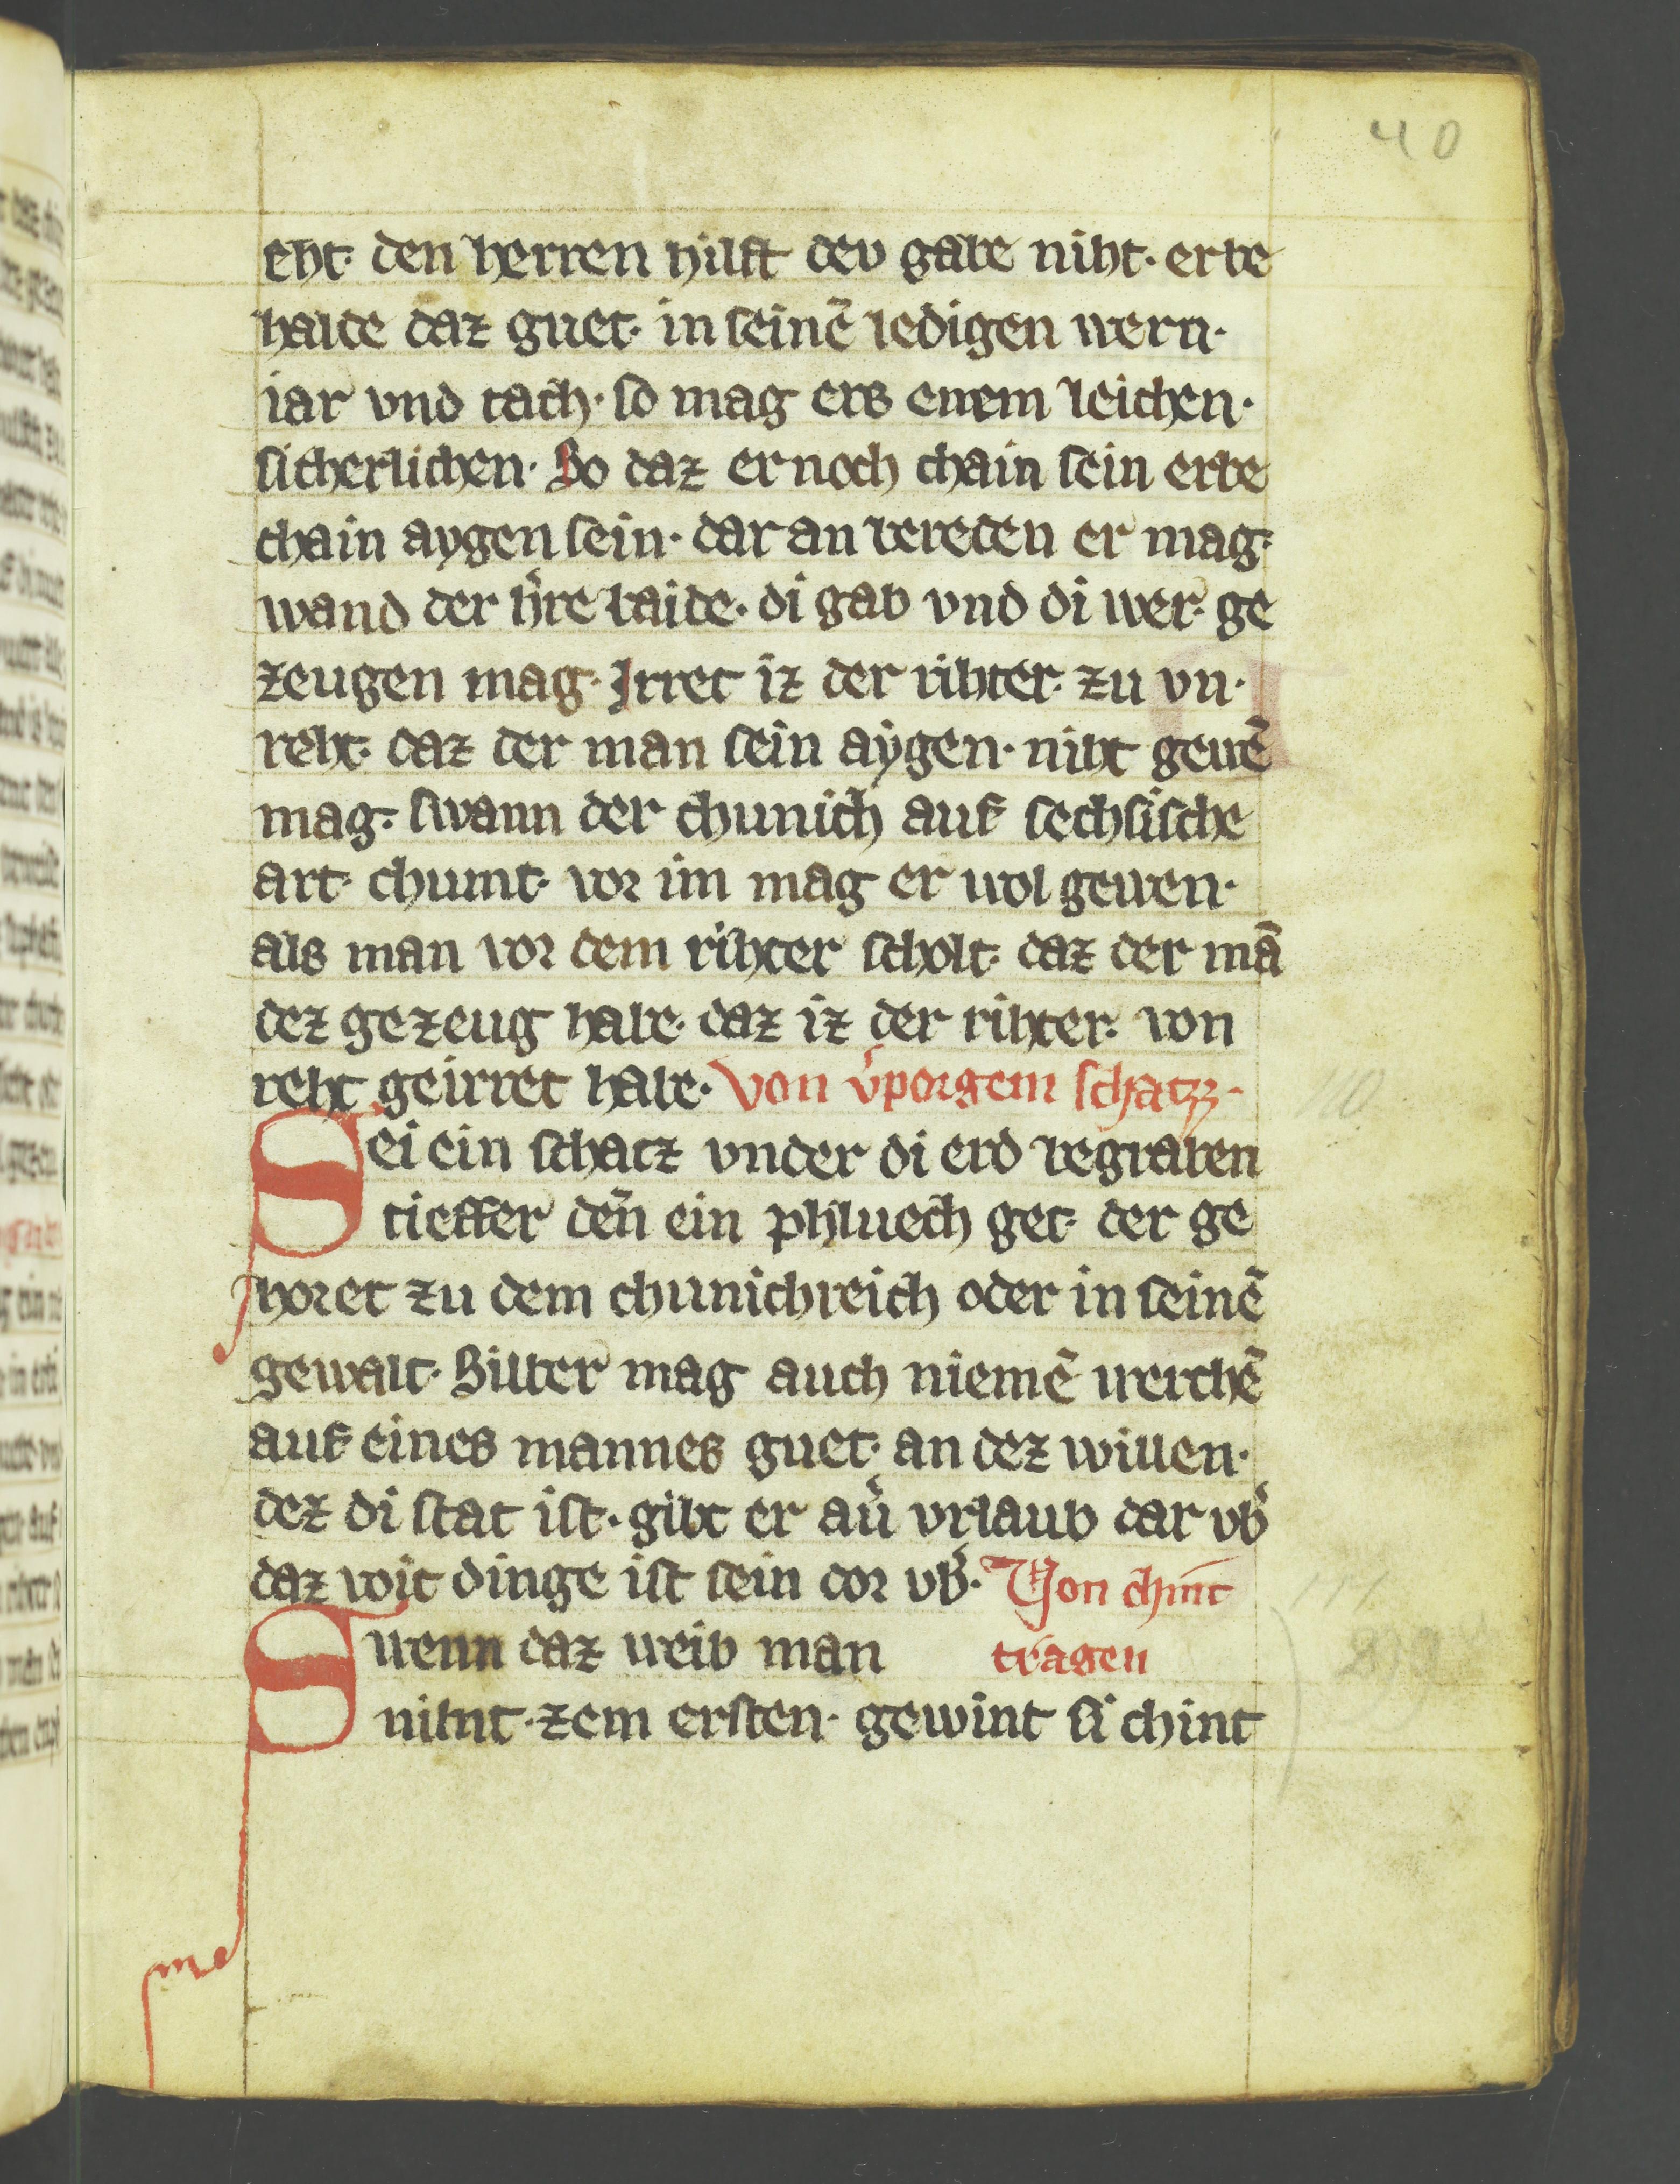 40
eht· den herren hilft dev gabe niht· er be
halde daz guet· in seinē ledigen wern·
iar vnd tach· so mag ers einem leichen·
sicherlichen· So daz er noch chain sein erbe
chain aygen sein· dar an bereden er mag·
wand der h̾re baide· di gab vnd di wer· ge
zeugen mag· Irret iz der rihter· zu vn·
reht· daz der man sein aygen· niht gewē
mag· swann der chunich auf sechsische
art· chumt· vor im mag er wol gewen·
als man vor dem rihter scholt· daz der mā
dez gezeug habe· daz iz der rihter· von
reht geirret habe· Von v̾porgem schatzz·
Sei ein schatz vnder di erd begraben
tieffer deñ ein phluech get· der ge
horet zu dem chunichreich oder in seinē
gewalt· Silber mag auch niemē werchē
auf eines mannes guet· an dez willen·
dez di stat ist· gibt er au̾ vrlaub dar vb̾
daz voit dinge ist sein dor vb̾· Von chint
Swenn daz weib man tragen
nimt· zem ersten· gewint si chint
110
111